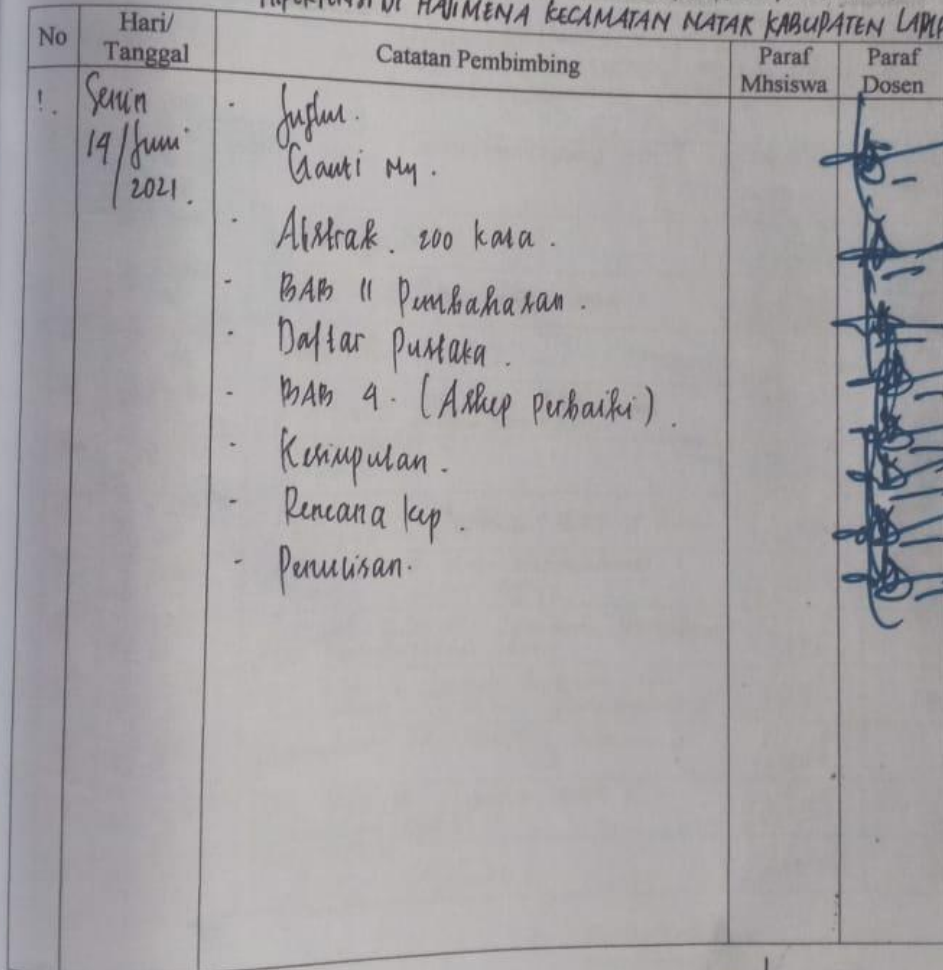 HIPERTENSI DI HAJIMENA KECAMATAN NATAR KABUPATEN
No Hari/ Tanggal Catatan Pembimbing Paraf Mhsiswa Paraf Dosen
1. Senin
14/Juni
2021.
-
Ganti
- Abstrak. 200 kata.
- BAB II Pembahasan.
- Daftar Pustaka.
- BAB 4. (Askep perbaiki).
- Kesimpulan.
- Rencana kep.
- Penulisan.